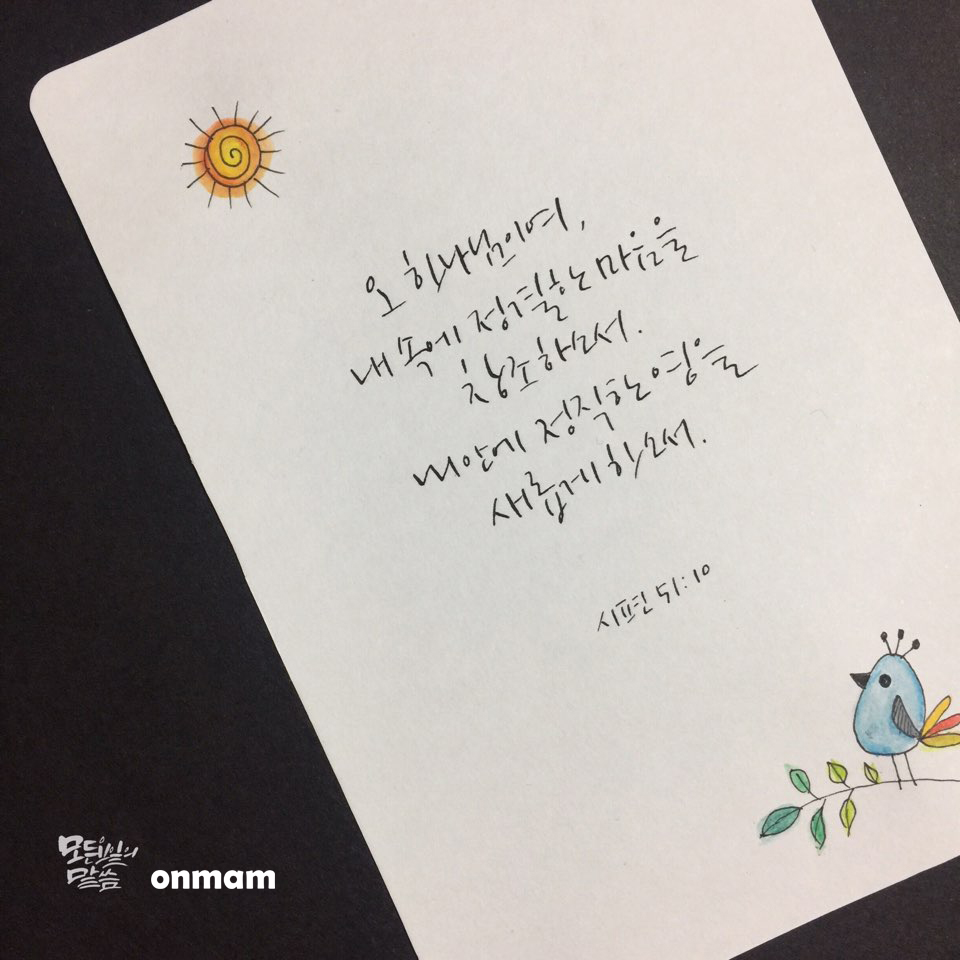 오 하나님이여,
내 속에 정결한 마음을
창조하소서.
내 안에 정직한 영을
새롭게 하소서.
시편 51:10
말씀
onmam